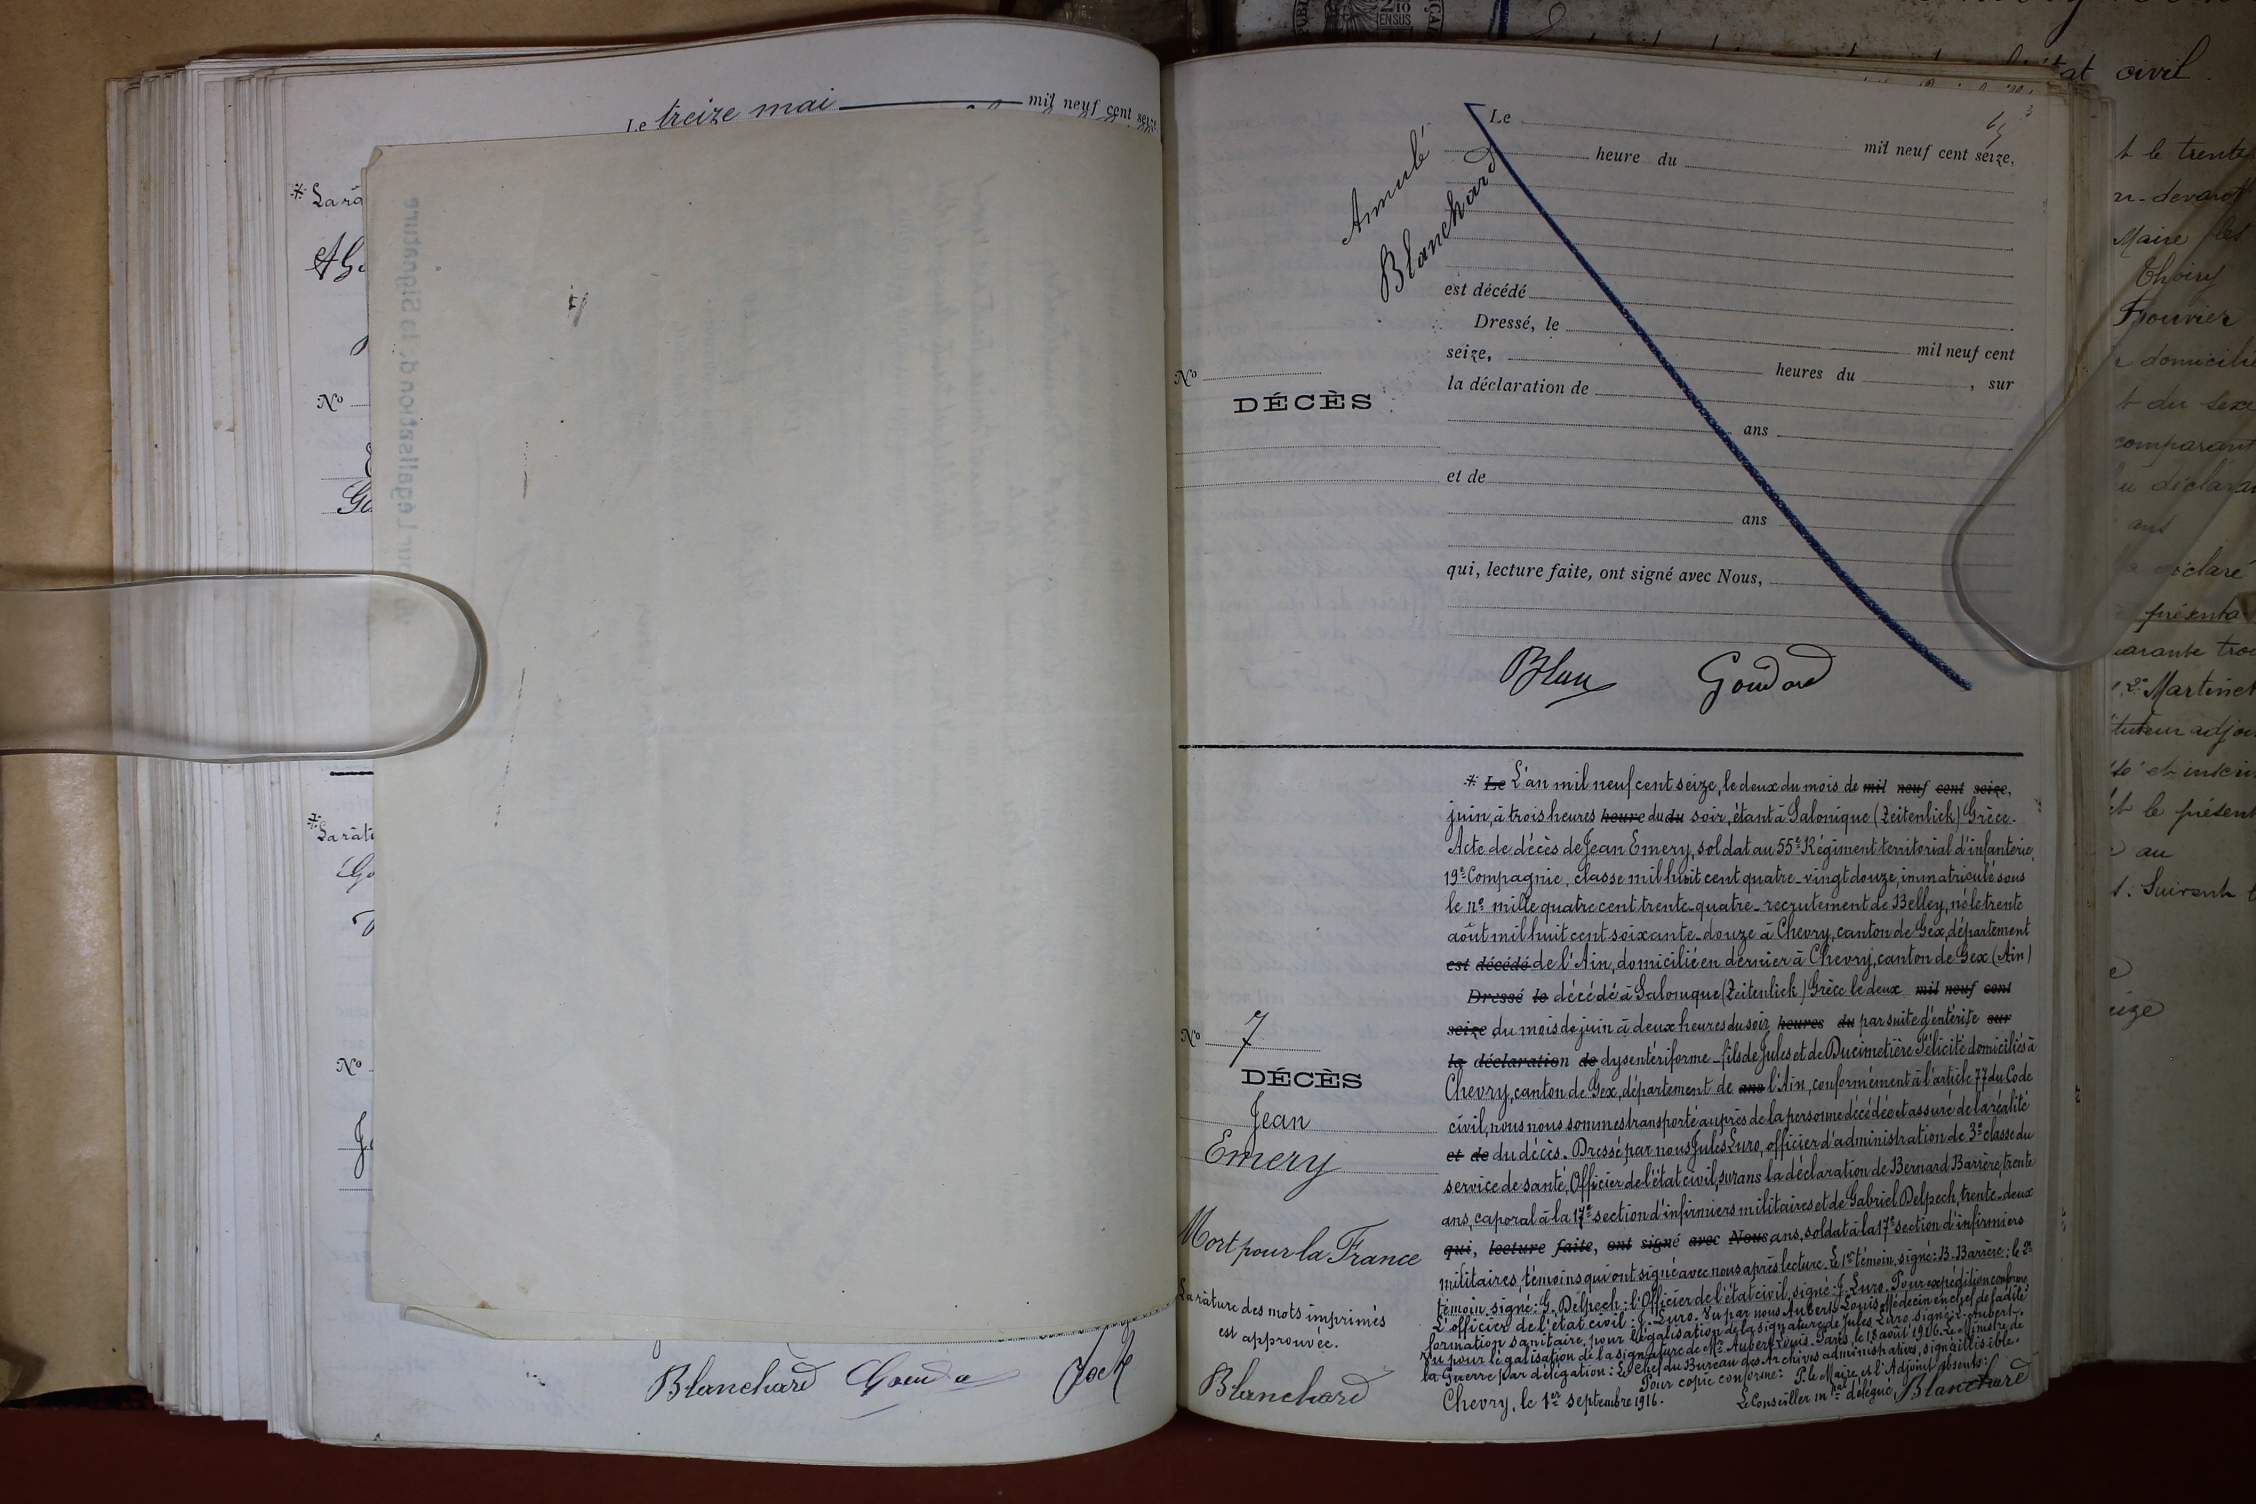 Le treize mai mil neuf cent seize
* La râ
No
Ga
* La râtu
No
Blanchard
Le
mil neuf cent seize,
heure du
Annulé
Blanchard
est décédé
Dressé, le
mil neuf cent
seize, heures du , sur
la déclaration de
No
DÉCÈS
ans
et de
ans
qui, lecture faite, ont signé avec Nous,
Goudard
* Le L'an mil neuf cent seize, le deux du mois de mil neuf cent seize,
juin, à trois heures heure du du soir, étant à Salonique (Zeitenlick) Grèce.
Acte de décès de Jean Emery, soldat au 55e Régiment territorial d'infanterie,
19e Compagnie, classe mil huit cent quatre-vingt douze, immatriculé sous
le no mille quatre cent trente-quatre - recrutement de Belley, né le trente
août mil huit cent soixante-douze à Chevry, canton de Gex, département
est décédé de l'Ain, domicilié en dernier à Chevry, canton de Gex (Ain)
Dressé le décédé à Salonique (Zeitenlick) Grèce le deux mil neuf cent
seize du mois de juin à deux heures du soir heures du par suite d'entérite sur
la déclaration de dysentériforme - fils de Jules et de Ducimetière Félicité domiciliés à
Chevry, canton de Gex, département de ans l'Ain, conformément à l'article 77 du Code
civil, nous nous sommes transporté auprès de la personne décédée et assuré de la réalité
et de du décès. Dressé par nous Jules Luro, officier d'administration de 3e classe du
service de santé, Officier de l'état civil, sur ans la déclaration de Bernard Barrère, trente
ans, caporal à la 17e section d'infirmiers militaires et de Gabriel Delpech, trente-deux
qui, lecture faite, ont signé avec Nous ans, soldat à la 17e section d'infirmiers
militaires, témoins qui ont signé avec nous après lecture. Le 1er témoin, signé: B. Barrère; le 2e
témoin, signé: G. Delpech; l'Officier de l'état civil, signé: J. Luro. Pour expédition conforme,
L'officier de l'état civil: J. Luro. Vu par nous Aubert Louis, Médecin en chef de ladite
formation sanitaire, pour légalisation de la signature de Jules Luro, signé: L. Aubert.
Vu pour légalisation de la signature de Mr Aubert Louis. Paris, le 18 août 1916. Le Ministre de
la Guerre par délégation: Le Chef du Bureau des Archives administratives, signé: illisible.
Pour copie conforme: P. le Maire et l'Adjoint absents:
Chevry, le 1er septembre 1916. Le Conseiller mpal délégué, Blanchard
No 7
DÉCÈS
Jean
Emery
Mort pour la France
La râture des mots imprimés
est approuvée.
Blanchard
at civil.
t le trente
Maire les
Thoiry
Frouvier
domicilié
t du sexe
comparant
ans
déclaré
présenta
Martinet
et inscri
le présent
au